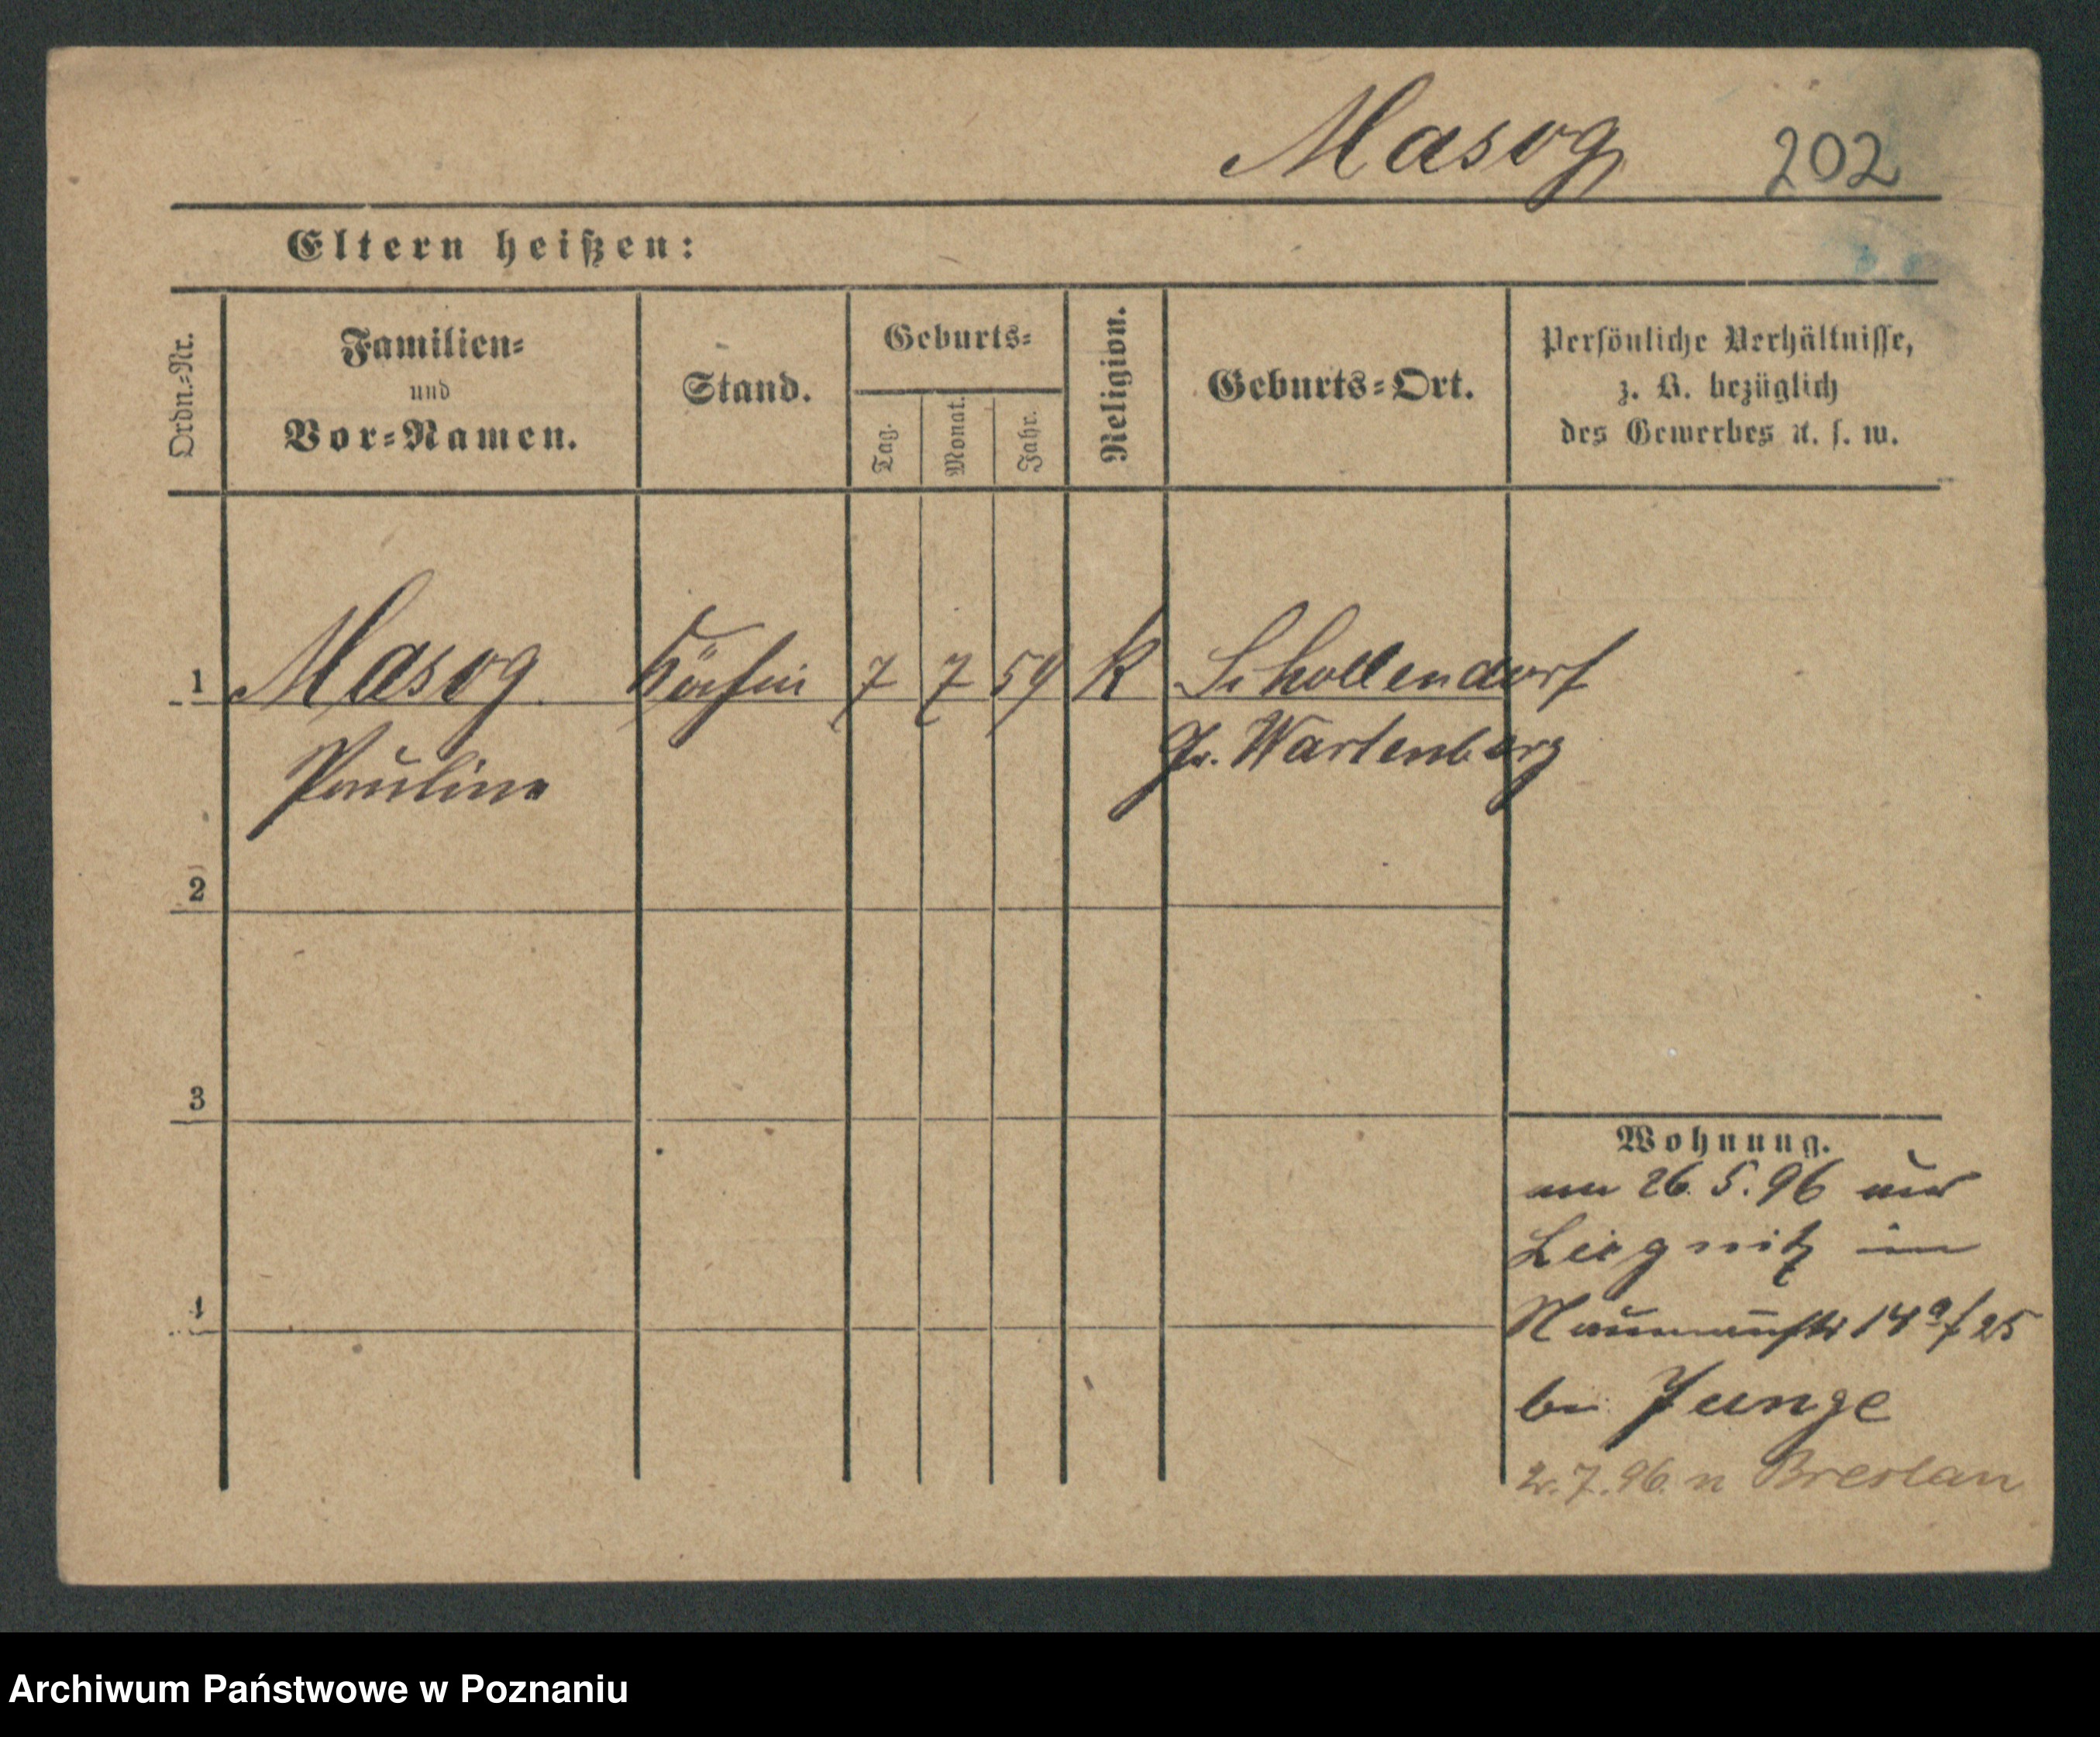 Masog 202
Eltern heißen:
Ordn.=Nr.
Familien=
und
Vor=Namen.
Stand.
Geburts=
Tag.
Monat.
Jahr.
Religion.
Geburts=Ort.
Persönliche Verhältnisse,
z. B. bezüglich
des Gewerbes u. s. w.
1 Masog Köchin 7 7 59 K Schollendorf
Pauline Gr. Wartenberg
2
3
4
Wohnung.
am 26. 5. 96 aus
Liegnitz in
Naumannstr 14 a/25
bei Junge
2. 7. 96. n Breslau
Archiwum Państwowe w Poznaniu